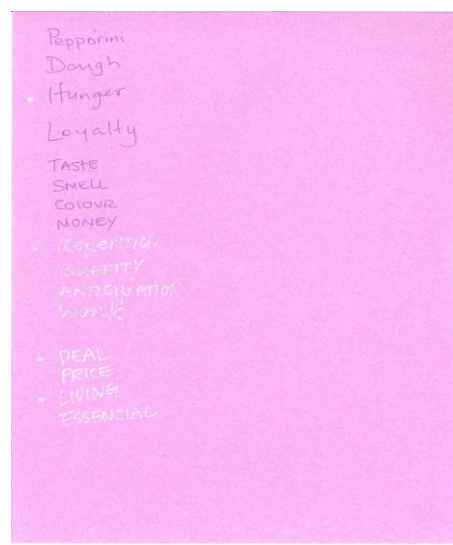 Pepporini
Dough
• Hunger
Loyalty
TASTE
SMELL
COLOUR
MONEY
• REPETITION
QUATITY
ANTICIPATION
WORK
• DEAL
PRICE
• LIVING
ESSENCIAL